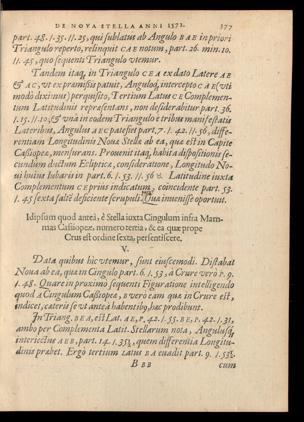 DE NOVA STELLA ANNI 1572. 377
part. 48. 1. 35. 11. 25, qui sublatus ab Angulo BAE in priori
Triangulo reperto, relinquit CAE notum, part. 26. min. 10.
11. 45, quo sequenti Triangulo vtemur.
Tandem itaq, in Triangulo CEA ex dato Latere AE
& AC, vt ex præmissis patuit, Anguloq, intercepto CAE (vti
modò diximus) perquisito, Tertium Latus CE Complemen-
tum Latitudinis repræsentans, non desiderabitur part. 36.
1. 15. 11. 10, & vnà in eodem Triangulo è tribus manifestis
Lateribus, Angulus AEC patefiet part. 7. 1. 42. 11. 56, diffe-
rentiam Longitudinis Novæ Stellæ ab ea, quæ est in Capite
Cassiopeæ, mensurans. Provenit itaq, habita dispositionis se-
cundùm ductum Eclipticæ, consideratione, Longitudo No-
væ huius Inharis in part. 6. 1. 53. 11. 56 ♉. Latitudine iuxta
Complementum CE priùs indicatum, coincidente part. 53.
1. 45 sexta saltē deficiente scrupuli. Qua invenisse oportuit.
Idipsum quod anteà, è Stella iuxta Cingulum infra Mam-
mas Cassiopeæ, numero tertia, & ea quæ prope
Crus est ordine sexta, persentiscere.
V.
Data quibus hîc vtemur, sunt eiuscemodi. Distabat
Nova ab ea, quæ in Cingulo part. 6. 1. 53, à Crure verò P. 9.
1. 48. Quare in proximo sequenti Figuratione intelligendo
quod A Cingulum Cassiopeæ, B verò eam quæ in Crure est,
indicet, cæteris se vt anteà habentibus, hæc prodibunt.
In Triang. BEA, est Lat. AE, P. 42. 1. 55. BE, P. 42. 1. 31,
ambo per Complementa Latit. Stellarum nota, Angulusq,
interiectus AEB, part. 14. 1. 35½, quem differentia Longitu-
dinis præbet. Ergò tertium latus BA evadit part. 9. 1. 53½.
BBB cum